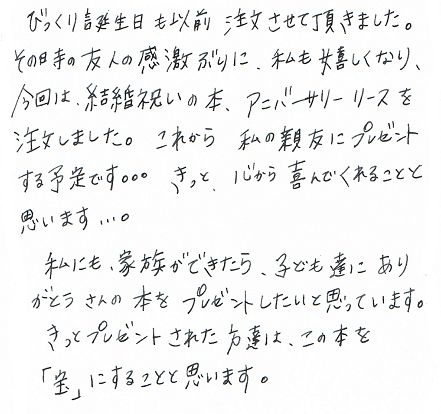 びっくり誕生日も以前 注文させて頂きました。
その時の友人の感激ぶりに、私も嬉しくなり、
今回は、結婚祝いの本、アニバーサリーリースを
注文しました。これから 私の親友にプレゼント
する予定です。。。 きっと、心から喜んでくれることと
思います…。
私にも、家族ができたら、子ども達に あり
がとうさんの本を プレゼントしたいと思っています。
きっとプレゼントされた方達は、この本を
「宝」にすることと思います。